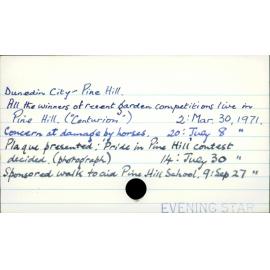 Dunedin City - Pine Hill.
All the winners of recent garden competitions live in
Pine Hill. ("Centurion") 2: Mar. 30, 1971.
Concern at damage by horses. 20: July 8 "
Plaque presented: "Pride in Pine Hill contest
decided. (photograph) 14: July 30 "
Sponsored walk to aid Pine Hill School. 9: Sep 27 "
EVENING STAR